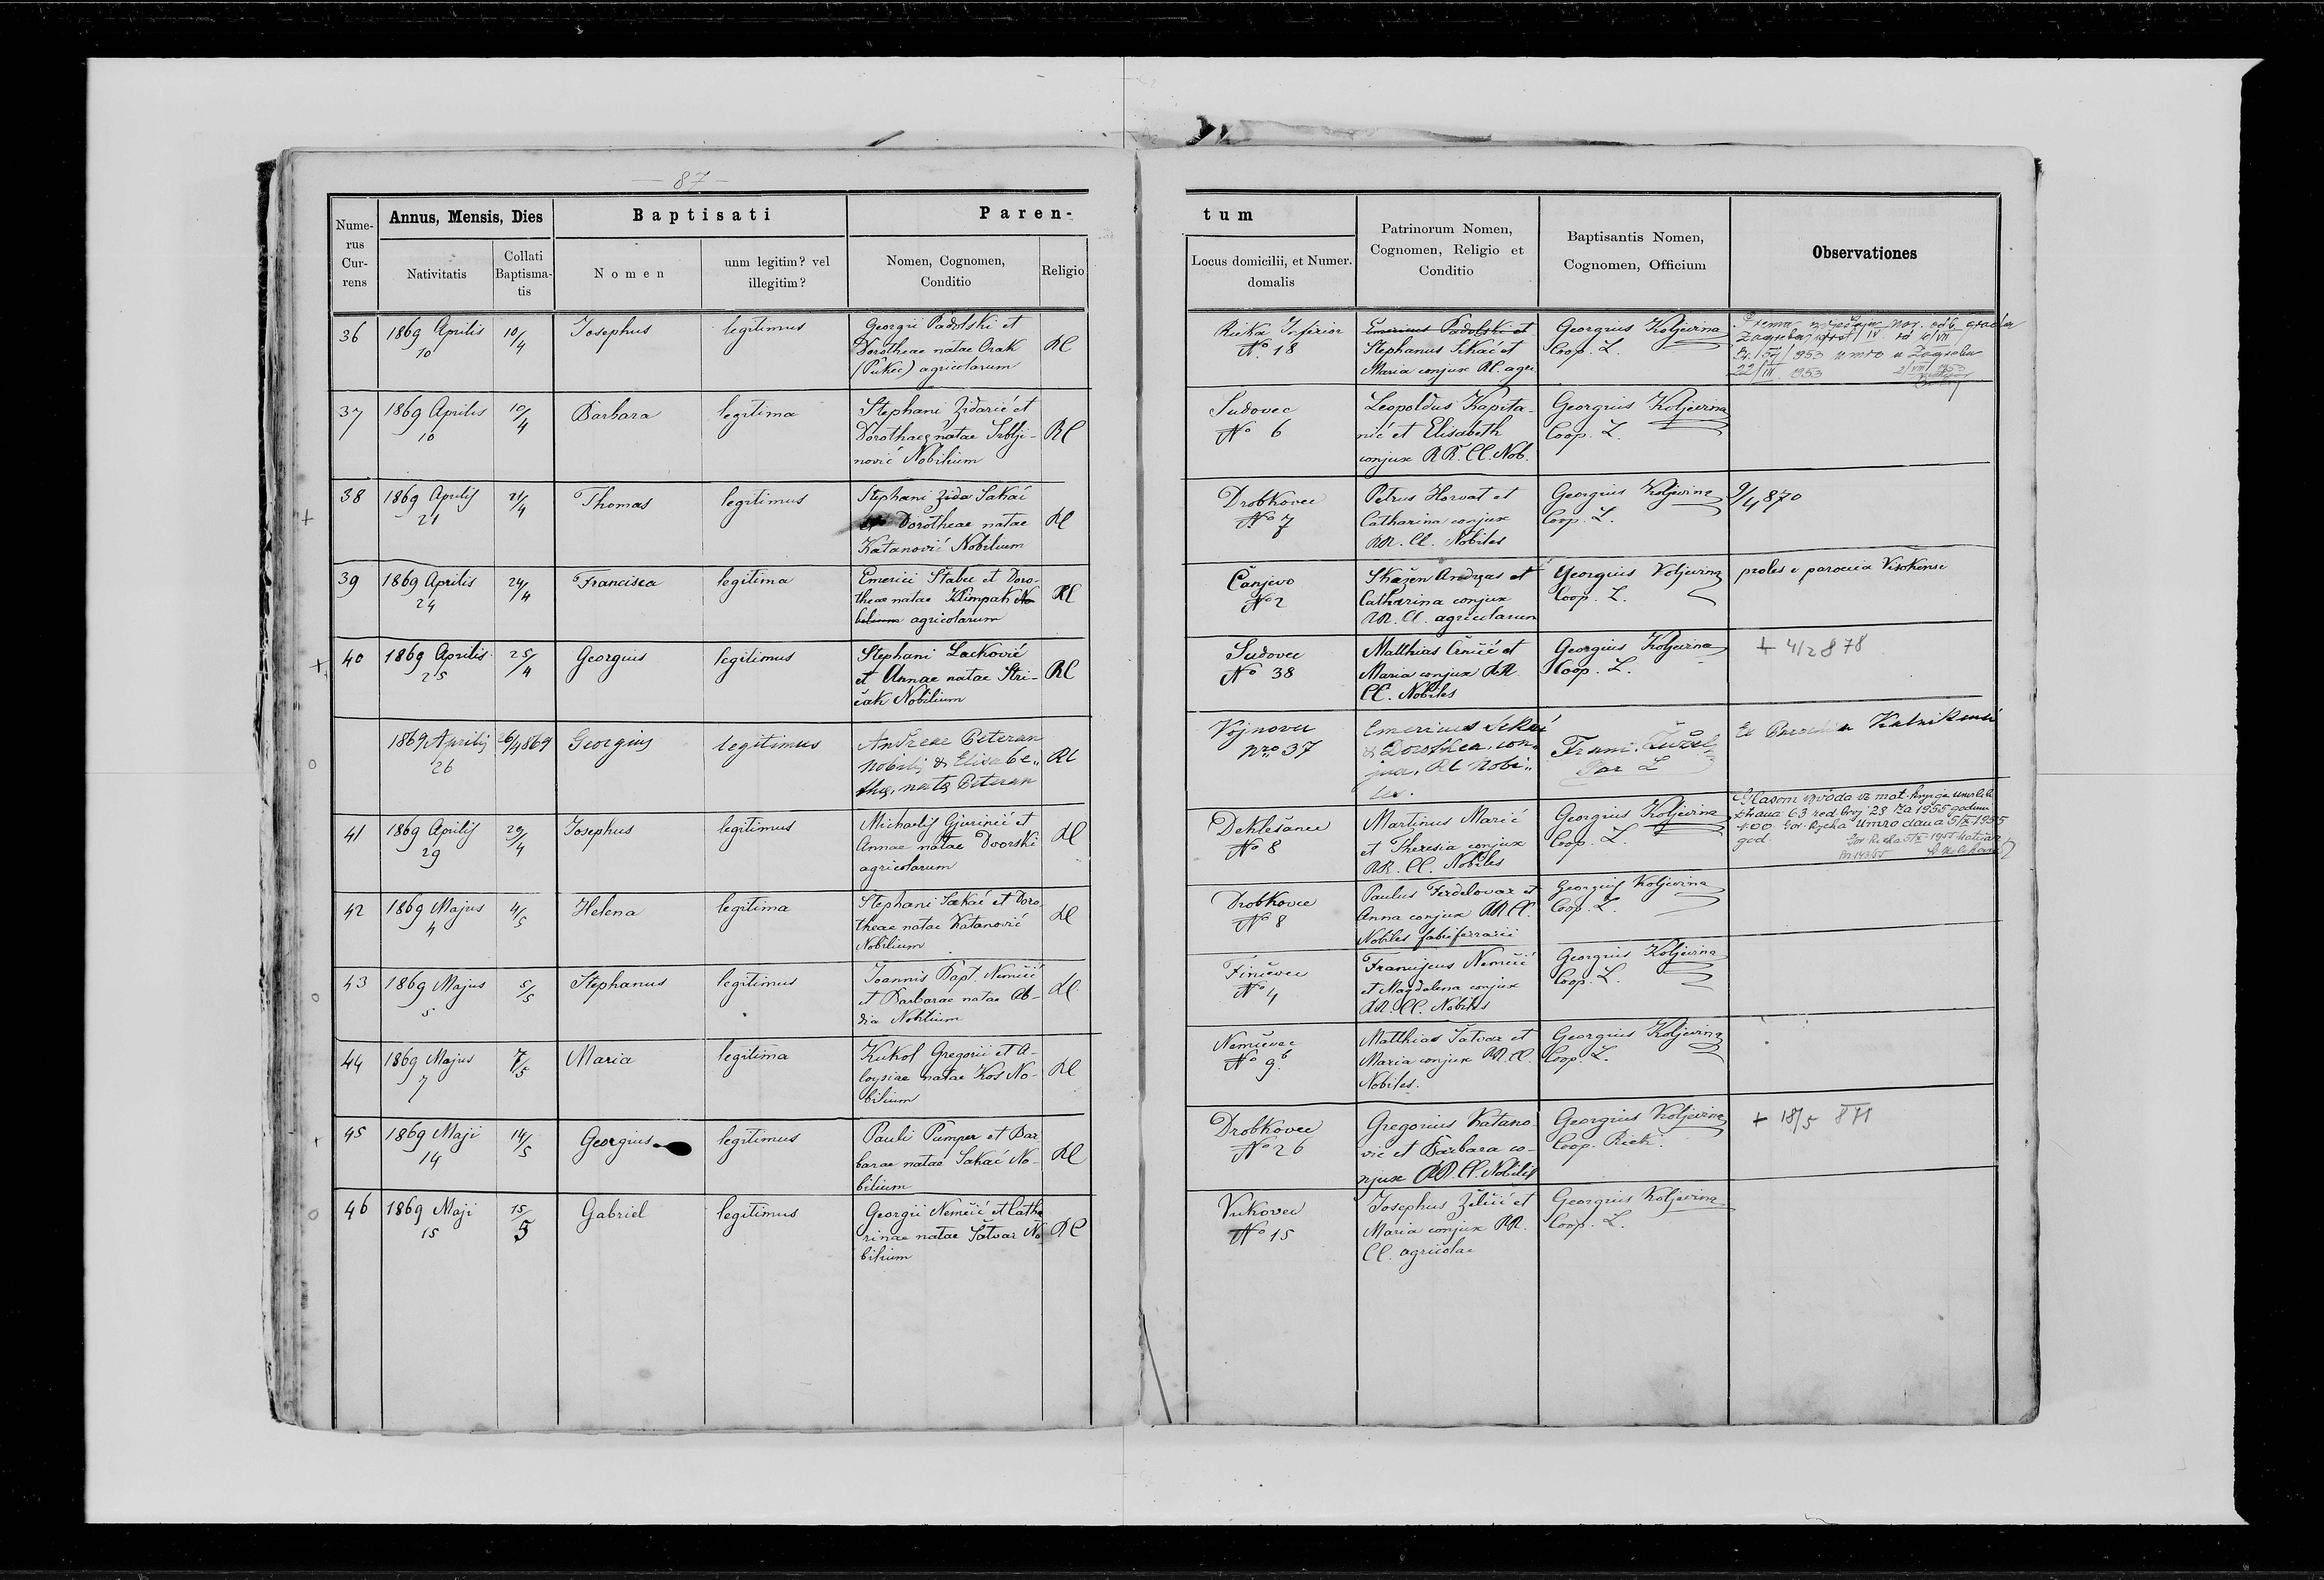 — 87 —
Nume-
rus
Cur-
rens
Annus, Mensis, Dies
Nativitatis
Collati
Baptisma-
tis
Baptisati
Nomen
unm legitim? vel
illegitim?
Paren-
Nomen, Cognomen,
Conditio
Religio
tum
Locus domicilii, et Numer.
domalis
Patrinorum Nomen,
Cognomen, Religio et
Conditio
Baptisantis Nomen,
Cognomen, Officium
Observationes
36
1869 Aprilis
10
10/4
Josephus
legitimus
Georgii Padolski et
Dorotheae natae Orak
agricolarum
RC
Rieka Inferior
No. 18
Emericus Padolski et
Stephanus Sekać et
Maria conjux RC. agri
Georgius Koljevina
Coop. L.
953 umro u Zagrebu
22/III 953
37
1869 Aprilis
10
10/4
Barbara
legitima
Stephani Zidarić et
Dorotheae natae Srblji-
nović Nobilium
RC
Sudovec
No 6
Leopoldus Kapita-
nić et Elisabeth
conjux RR. CC. Nob.
Georgius Koljevina
Coop. L.
38
1869 Aprilis
21
21/4
Thomas
legitimus
Stephani Sakać
Dorotheae natae
Katanović Nobilium
RC
Drobkovec
No 7
Petrus Horvat et
Catharina conjux
RR. CC. Nobiles
Georgius Koljevina
Coop. L.
9/4 870
39
1869 Aprilis
24
24/4
Francisca
legitima
Emerici Štabec et Doro-
theae natae Klimpak No-
bilium agricolarum
RC
Čanjevo
No 2
Skazen Andreas et
Catharina conjux
RR. CC. agricolarum
Georgius Koljevina
Coop. L.
proles e paroecia Visokensi
40
1869 Aprilis
25
25/4
Georgius
legitimus
Stephani Lacković
et Annae natae Stri-
čak Nobilium
RC
Sudovec
No 38
Matthias Črnčić et
Maria conjux RR
CC. Nobiles
Georgius Koljevina
Coop. L.
+ 4/2 878
1869 Aprilis
26
26/4 869
Georgius
legitimus
Andreae Peteran
nobilis & Elisabe,,
thae, natae Peteran
RC
Vojnovec
nro 37
Emericus Sekać
& Dorothea, con,
jux, RC Nobi,,
les.
Par L
Ex Paroecia Kalnikensi
41
1869 Aprilis
29
29/4
Josephus
legitimus
Michaelis Gjurinić et
Annae natae Dvorski
agricolarum
RC
Deklešanec
No 8
Martinus Marić
et Theresia conjux
RR. CC. Nobiles
Georgius Koljevina
Coop. L.
Glasom izvoda iz mat. knjige umrlih
strana 63 red. broj 28 za 1955 godinu
N.O.O. Gor. Rijeka umro dana 5/IX-1955
god.
42
1869 Majus
4
4/5
Helena
legitima
Stephani Sakać et Doro
theae natae Katanović
Nobilium
RC
Drobkovec
No 8
Paulus Ferdelovar et
Anna conjux RR CC.
Nobiles fabri ferrarii
Georgius Koljevina
Coop. L.
43
1869 Majus
5
5/5
Stephanus
legitimus
Joannis Bapt. Nemčić
et Barbarae natae Ab-
dia Nobilium
RC
Finčevec
No 4
Franciscus Nemčić
et Magdalena conjux
RR. CC. Nobiles
Georgius Koljevina
Coop. L.
44
1869 Majus
7
7/5
Maria
legitima
Kukol Gregorii et A-
loysiae natae Kos No-
bilium
RC
Nemčevec
No 9b
Matthias Šatvar et
Maria conjux RR. CC.
Nobiles.
Georgius Koljevina
Coop. L.
45
1869 Maji
14
14/5
Georgius
legitimus
Pauli Pumper et Bar
barae natae Sakać No-
bilium
RC
Drobkovec
No 26
Gregorius Katano
vić et Barbara co-
njux RR. CC. Nobiles
Georgius Koljevina
Coop. Riek.
+ 18/5 871
46
1869 Maji
15
15/5
Gabriel
legitimus
Georgii Nemčić et Catha
rinae natae Šatvar No
bilium
RC
Vukovec
No 15
Josephus Želčić et
Maria conjux RR.
CC. agricolae
Georgius Koljevina
Coop. L.